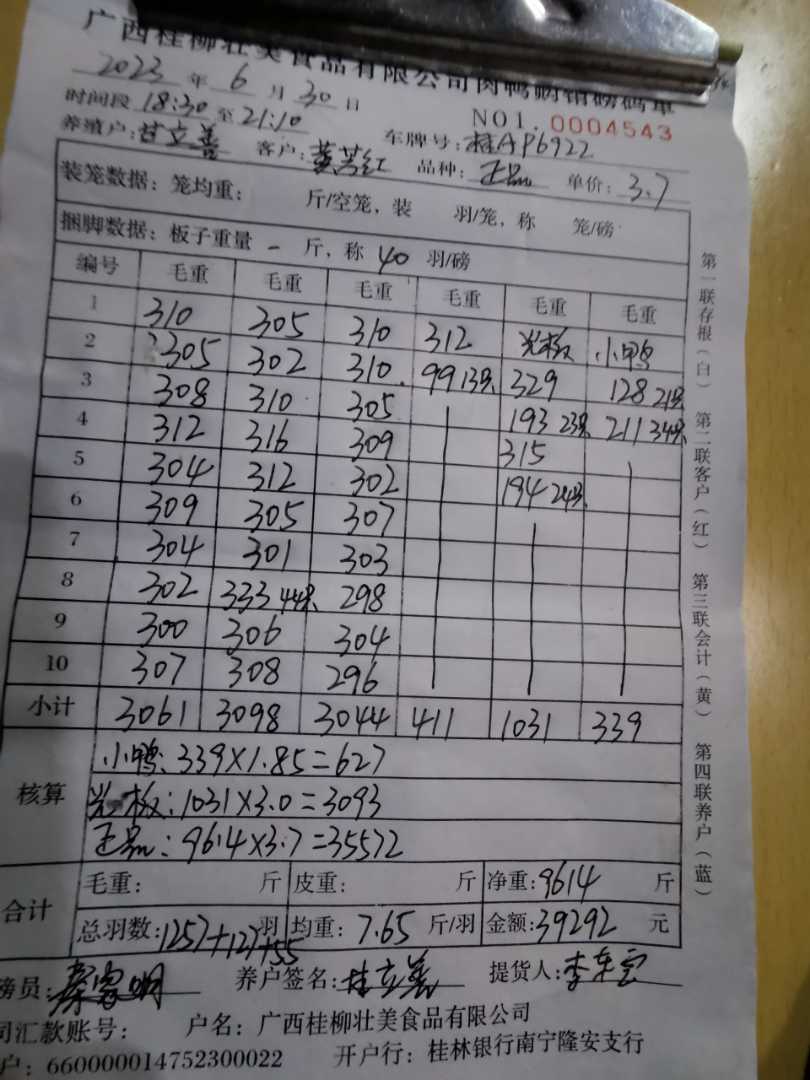 广西桂柳壮美食品有限公司肉鸭购销磅码单
2023 年 6 月 30 日
NO1. 0004543
时间段 18:30 至 21:10
车牌号: 桂AP6922
养殖户: 甘立善 客户: 黄芳红 品种: 正品 单价: 3.7
装笼数据: 笼均重: 斤/空笼, 装 羽/笼, 称 笼/磅
捆脚数据: 板子重量 一 斤, 称 40 羽/磅
编号 毛重 毛重 毛重 毛重 毛重 毛重
1 310 305 310 312 光板 小鸭
2 305 302 310 99 13只 329 128 21只
3 308 310 305 193 23只 211 34只
4 312 316 309 315
5 304 312 302 194 24只
6 309 305 307
7 304 301 303
8 302 333 44只 298
9 300 306 304
10 307 308 296
小计 3061 3098 3044 411 1031 339
核算
小鸭: 339×1.85=627
光板: 1031×3.0=3093
正品: 9614×3.7=35572
合计
毛重: 斤 皮重: 斤 净重: 9614 斤
总羽数: 1257+127+55 羽 均重: 7.65 斤/羽 金额: 39292 元
磅员: 养户签名: 甘立善 提货人:
司汇款账号: 户名: 广西桂柳壮美食品有限公司
户: 660000014752300022 开户行: 桂林银行南宁隆安支行
第一联存根(白) 第二联客户(红) 第三联会计(黄) 第四联养户(蓝)